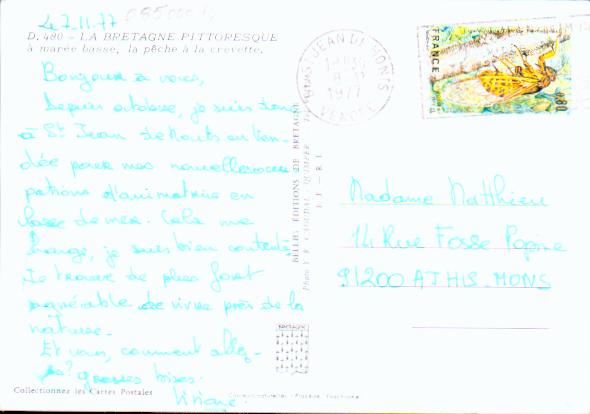 le 7.11.77
D. 480 - LA BRETAGNE PITTORESQUE
à marée basse, la pêche à la crevette.
Bonjour à vous,
Depuis octobre, je suis donc
à St Jean de Monts en Ven-
dée pour mes nouvelles occu-
pations d'animatrice en
classe de mer. Cela me
change, je suis bien contente.
Je trouve de plus fort
agréable de vivre près de la
nature.
Et vous, comment allez-
vs? grosses bises.
Viviane
Collectionnez les Cartes Postales
BELLES ÉDITIONS DE BRETAGNE
ST JEAN DE MONTS
8-11
1977
VENDÉE
FRANCE
0,80
Madame Matthieu
14 Rue Fosse Popine
91200 ATHIS-MONS